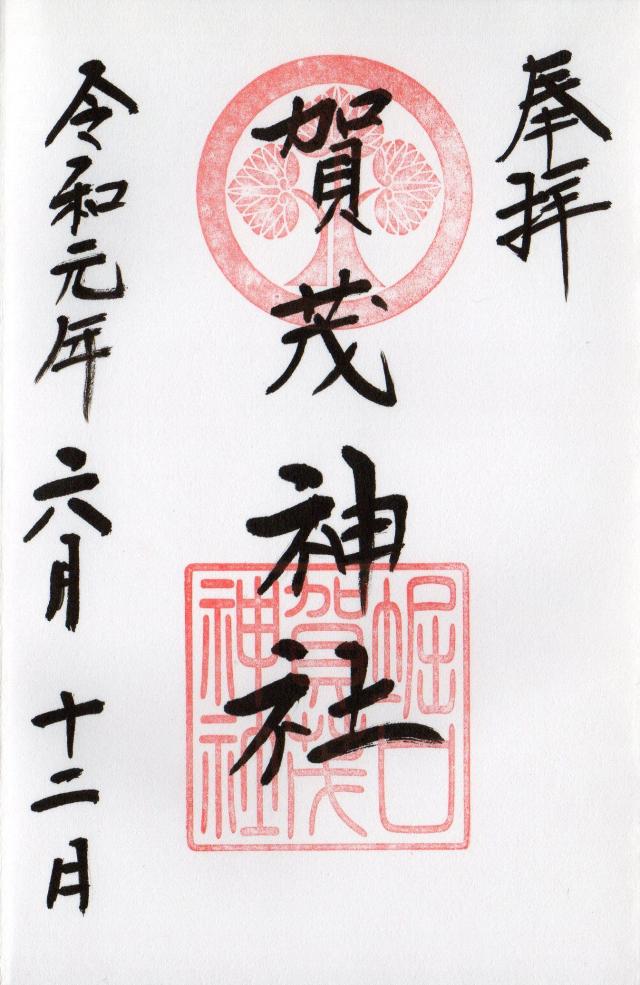 奉拝
賀茂神社
堀口
賀茂
神社
令和元年 六月 十二月